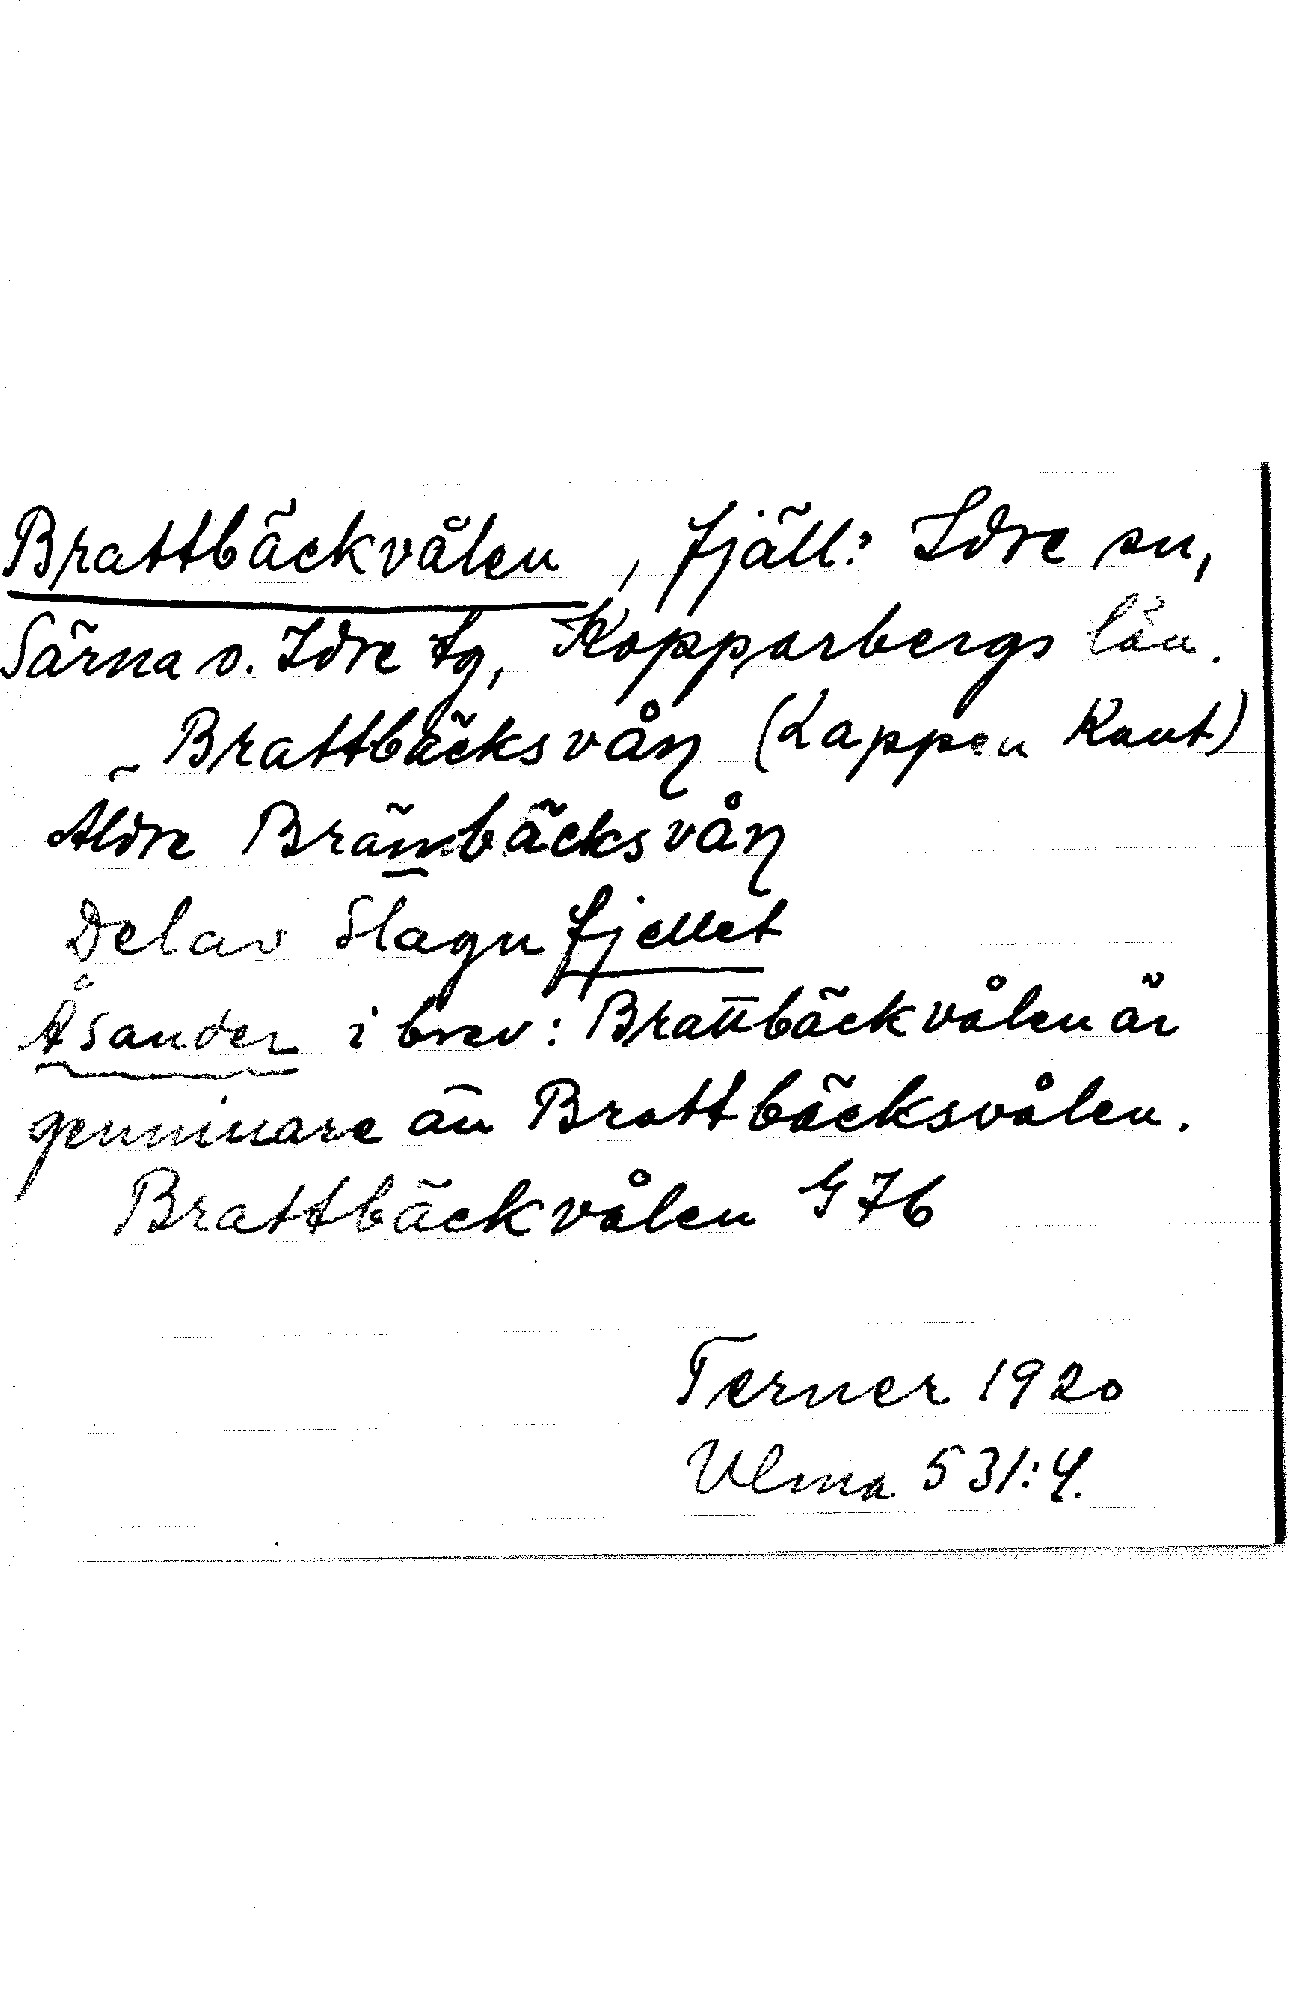 Brattbäckvålen, fjäll: Idre sn,
Särna o. Idre tg, Kopparbergs län.
Brattbäcksvåņ (Lappen Knut)
Äldre Brämbäcksvåņ
Del av Slagufjellet
Åsander i brev: Brattbäckvålen är
genuinare än Brattbäcksvålen.
Brattbäckvålen G 76
Terner 1920
Ulma 531:4.